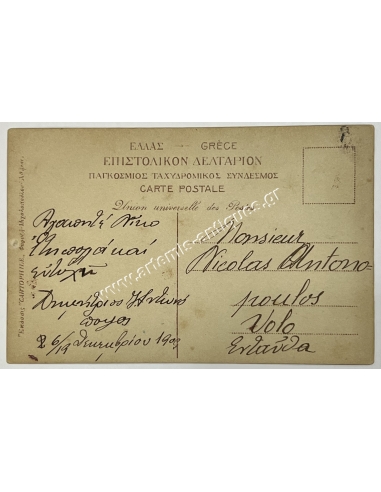 ΕΛΛΑΣ — GRÈCE
ΕΠΙΣΤΟΛΙΚΟΝ ΔΕΛΤΑΡΙΟΝ
ΠΑΓΚΟΣΜΙΟΣ ΤΑΧΥΔΡΟΜΙΚΟΣ ΣΥΝΔΕΣΜΟΣ
CARTE POSTALE
Union universelle des Postes
Αγαπητέ Νίκο
Έτη πολλά και
Δημήτριος Αντωνό
πουλος
6/19 Δεκεμβρίου
Monsieur
Nicolas Antono-
poulos
Volo
Ενταύθα
www.artemis-antiques.gr